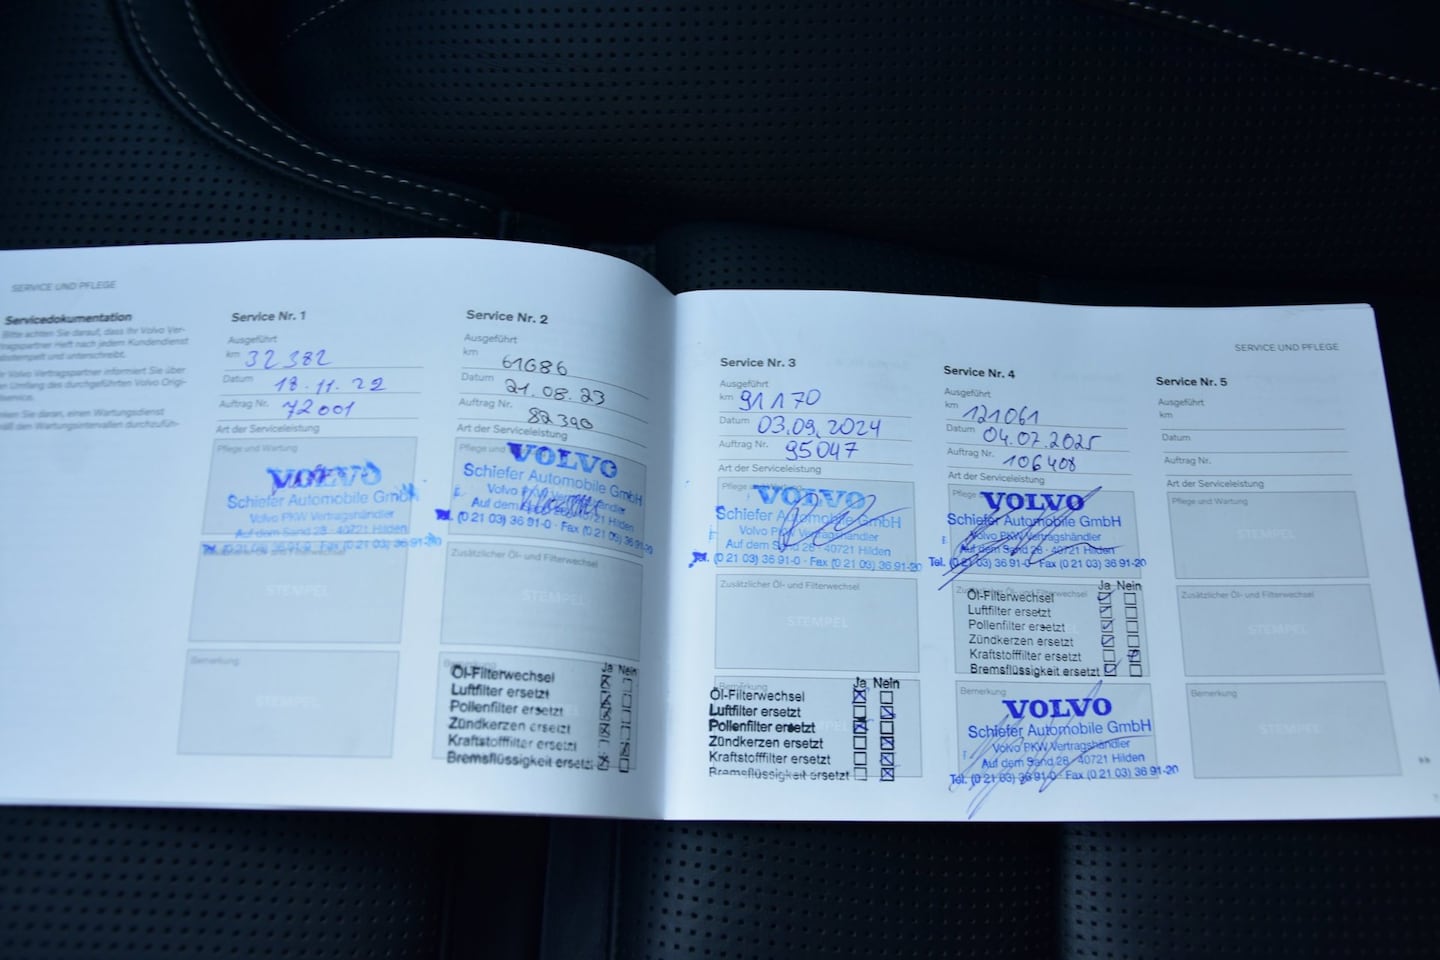 SERVICE UND PFLEGE
Servicedokumentation
Bitte achten Sie darauf, dass Ihr Volvo Ver-
tragspartner Heft nach jedem Kundendienst
abstempelt und unterschreibt.
Ihr Volvo Vertragspartner informiert Sie über
den Umfang des durchgeführten Volvo Origi-
Sie daran, einen Wartungsdienst
den Wartungsintervallen durchzufüh-
Service Nr. 1
Ausgeführt
km 32382
Datum 18.11.22
Auftrag Nr. 72001
Art der Serviceleistung
Pflege und Wartung
VOLVO
Schiefer Automobile GmbH
Volvo PKW Vertragshändler
Auf dem Sand 28 · 40721 Hilden
Tel. (0 21 03) 36 91-0 · Fax (0 21 03) 36 91-20
STEMPEL
Bemerkung
STEMPEL
Service Nr. 2
Ausgeführt
km 61686
Datum 21.08.23
Auftrag Nr. 82390
Art der Serviceleistung
Pflege und
VOLVO
Schiefer Automobile GmbH
Volvo PKW Vertragshändler
Auf dem Sand 28 · 40721 Hilden
Tel. (0 21 03) 36 91-0 · Fax (0 21 03) 36 91-20
Zusätzlicher Öl- und Filterwechsel
STEMPEL
Ja Nein
Öl-Filterwechsel
Luftfilter ersetzt
Pollenfilter ersetzt
Zündkerzen ersetzt
Kraftstofffilter ersetzt
Bremsflüssigkeit ersetzt
Service Nr. 3
Ausgeführt
km 91170
Datum 03.09.2024
Auftrag Nr. 95047
Art der Serviceleistung
Pflege und Wartung
VOLVO
Schiefer Automobile GmbH
Volvo PKW Vertragshändler
Auf dem Sand 28 · 40721 Hilden
Tel. (0 21 03) 36 91-0 · Fax (0 21 03) 36 91-20
Zusätzlicher Öl- und Filterwechsel
STEMPEL
Bemerkung
Ja Nein
Öl-Filterwechsel
Luftfilter ersetzt
Pollenfilter ersetzt
Zündkerzen ersetzt
Kraftstofffilter ersetzt
Bremsflüssigkeit ersetzt
SERVICE UND PFLEGE
Service Nr. 4
Ausgeführt
km 121061
Datum 04.07.2025
Auftrag Nr. 106408
Art der Serviceleistung
Pflege
VOLVO
Schiefer Automobile GmbH
Volvo PKW Vertragshändler
Auf dem Sand 28 · 40721 Hilden
Tel. (0 21 03) 36 91-0 · Fax (0 21 03) 36 91-20
Ja Nein
Öl-Filterwechsel
Luftfilter ersetzt
Pollenfilter ersetzt
Zündkerzen ersetzt
Kraftstofffilter ersetzt
Bremsflüssigkeit ersetzt
Bemerkung
VOLVO
Schiefer Automobile GmbH
Volvo PKW Vertragshändler
Auf dem Sand 28 · 40721 Hilden
Tel. (0 21 03) 36 91-0 · Fax (0 21 03) 36 91-20
Service Nr. 5
Ausgeführt
km
Datum
Auftrag Nr.
Art der Serviceleistung
Pflege und Wartung
STEMPEL
Zusätzlicher Öl- und Filterwechsel
STEMPEL
Bemerkung
STEMPEL